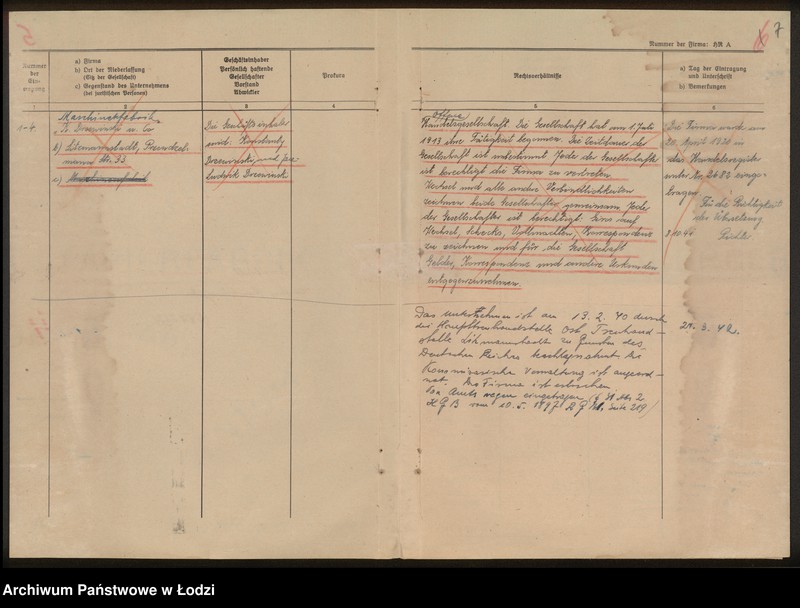 5
7
Nummer der Firma: HR A
Nummer der Eintragung
a) Firma
b) Ort der Niederlassung
(Sitz der Gesellschaft)
c) Gegenstand des Unternehmens
(bei juristischen Personen)
Geschäftsinhaber
Persönlich haftende
Gesellschafter
Vorstand
Abwickler
Prokura
Rechtsverhältnisse
a) Tag der Eintragung
und Unterschrift
b) Bemerkungen
1
2
3
4
5
6
Maschinenfabrik
b) Litzmannstadt,
mann Str. 33
c) Maschinenfabrik
Die Geschäftsinhaber
sind: Konstanty
Drzewiecki, und
Ludwik Drzewiecki
Offene
Handelsgesellschaft. Die Gesellschaft hat am 1 Juli
1919 ihre Tätigkeit begonnen. Die Zeitdauer der
Gesellschaft ist unbestimmt. Jede der Gesellschafter
ist berechtigt die Firma zu vertreten.
Wechsel und alle andere Verbindlichkeiten
zeichnen beide Gesellschafter gemeinsam. Jede
der Gesellschafter ist berechtigt: Eine auf
Wechsel, Schecks, Vollmachten, Korrespondenz
zu zeichnen und für die Gesellschaft
Gelder, Korrespondenz und andere
entgegenzunehmen.
Die Firma wurde am
20. April 1920 in
das Handelsregister
unter Nr. 2482 einge-
tragen.
Für die Richtigkeit
der Übersetzung
Das Unternehmen ist am 13. 2. 40 durch
die Haupttreuhandstelle Ost, Treuhand-
stelle Litzmannstadt zu Gunsten des
Deutschen Reiches beschlagnahmt. Die
Kommissarische Verwaltung ist angeord-
net. Die Firma ist erloschen.
Von Amts wegen eingetragen (§ 31 Abs 2
H G B vom 10. 5. 1897 R G Bl. Seite 219)
24. 3. 42.
Archiwum Państwowe w Łodzi